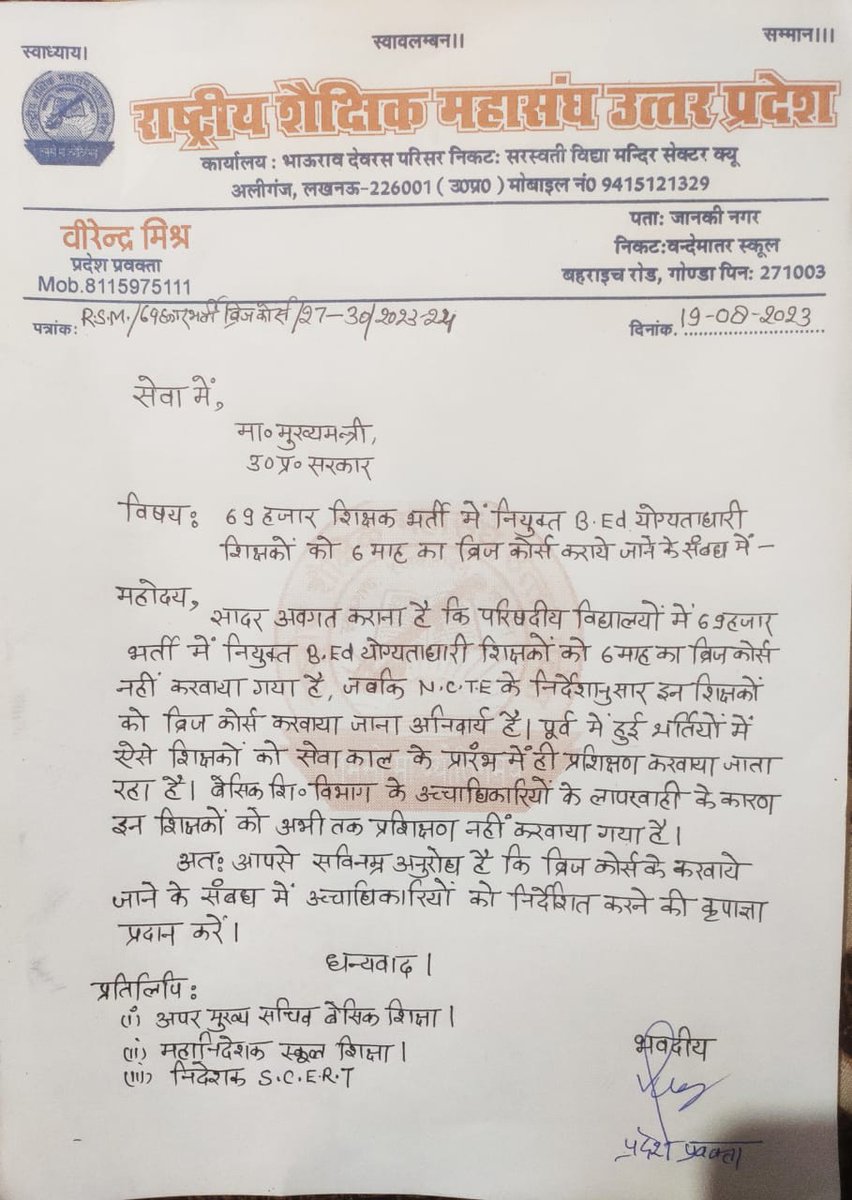 स्वाध्याय।
स्वावलम्बन।।
सम्मान।।।
राष्ट्रीय शैक्षिक महासंघ उत्तर प्रदेश
कार्यालय : भाऊराव देवरस परिसर निकट: सरस्वती विद्या मन्दिर सेक्टर क्यू
अलीगंज, लखनऊ-226001 ( उ0प्र0 ) मोबाइल नं0 9415121329
वीरेन्द्र मिश्र
प्रदेश प्रवक्ता
Mob.8115975111
पता: जानकी नगर
निकट:वन्देमातर स्कूल
बहराइच रोड, गोण्डा पिन: 271003
पत्रांक: R.S.M./69हजारभर्ती ब्रिज कोर्स/27-30/2023-24
दिनांक. 19-08-2023
सेवा में,
मा० मुख्यमन्त्री,
उ०प्र० सरकार
विषय: 69 हजार शिक्षक भर्ती में नियुक्त B.Ed योग्यताधारी
शिक्षकों को 6 माह का ब्रिज कोर्स कराये जाने के संबध में -
महोदय,
सादर अवगत कराना है कि परिषदीय विद्यालयों में 69हजार
भर्ती में नियुक्त B.Ed योग्यताधारी शिक्षकों को 6 माह का ब्रिज कोर्स
नहीं करवाया गया है, जबकि N.C.T.E के निर्देशानुसार इन शिक्षकों
को ब्रिज कोर्स करवाया जाना अनिवार्य है। पूर्व में हुई भर्तियों में
ऐसे शिक्षकों को सेवा काल के प्रारंभ में ही प्रशिक्षण करवाया जाता
रहा है। बैसिक शि० विभाग के उच्चाधिकारियों के लापरवाही के कारण
इन शिक्षकों को अभी तक प्रशिक्षण नहीं करवाया गया है।
अत: आपसे सविनम्र अनुरोध है कि ब्रिज कोर्स के करवाये
जाने के संबध में उच्चाधिकारियों को निर्देशित करने की कृपाज्ञा
प्रदान करें।
धन्यवाद।
प्रतिलिपि:
(i) अपर मुख्य सचिव बैसिक शिक्षा।
(ii) महानिदेशक स्कूल शिक्षा।
(iii) निदेशक S.C.E.R.T
भवदीय
प्रदेश प्रवक्ता